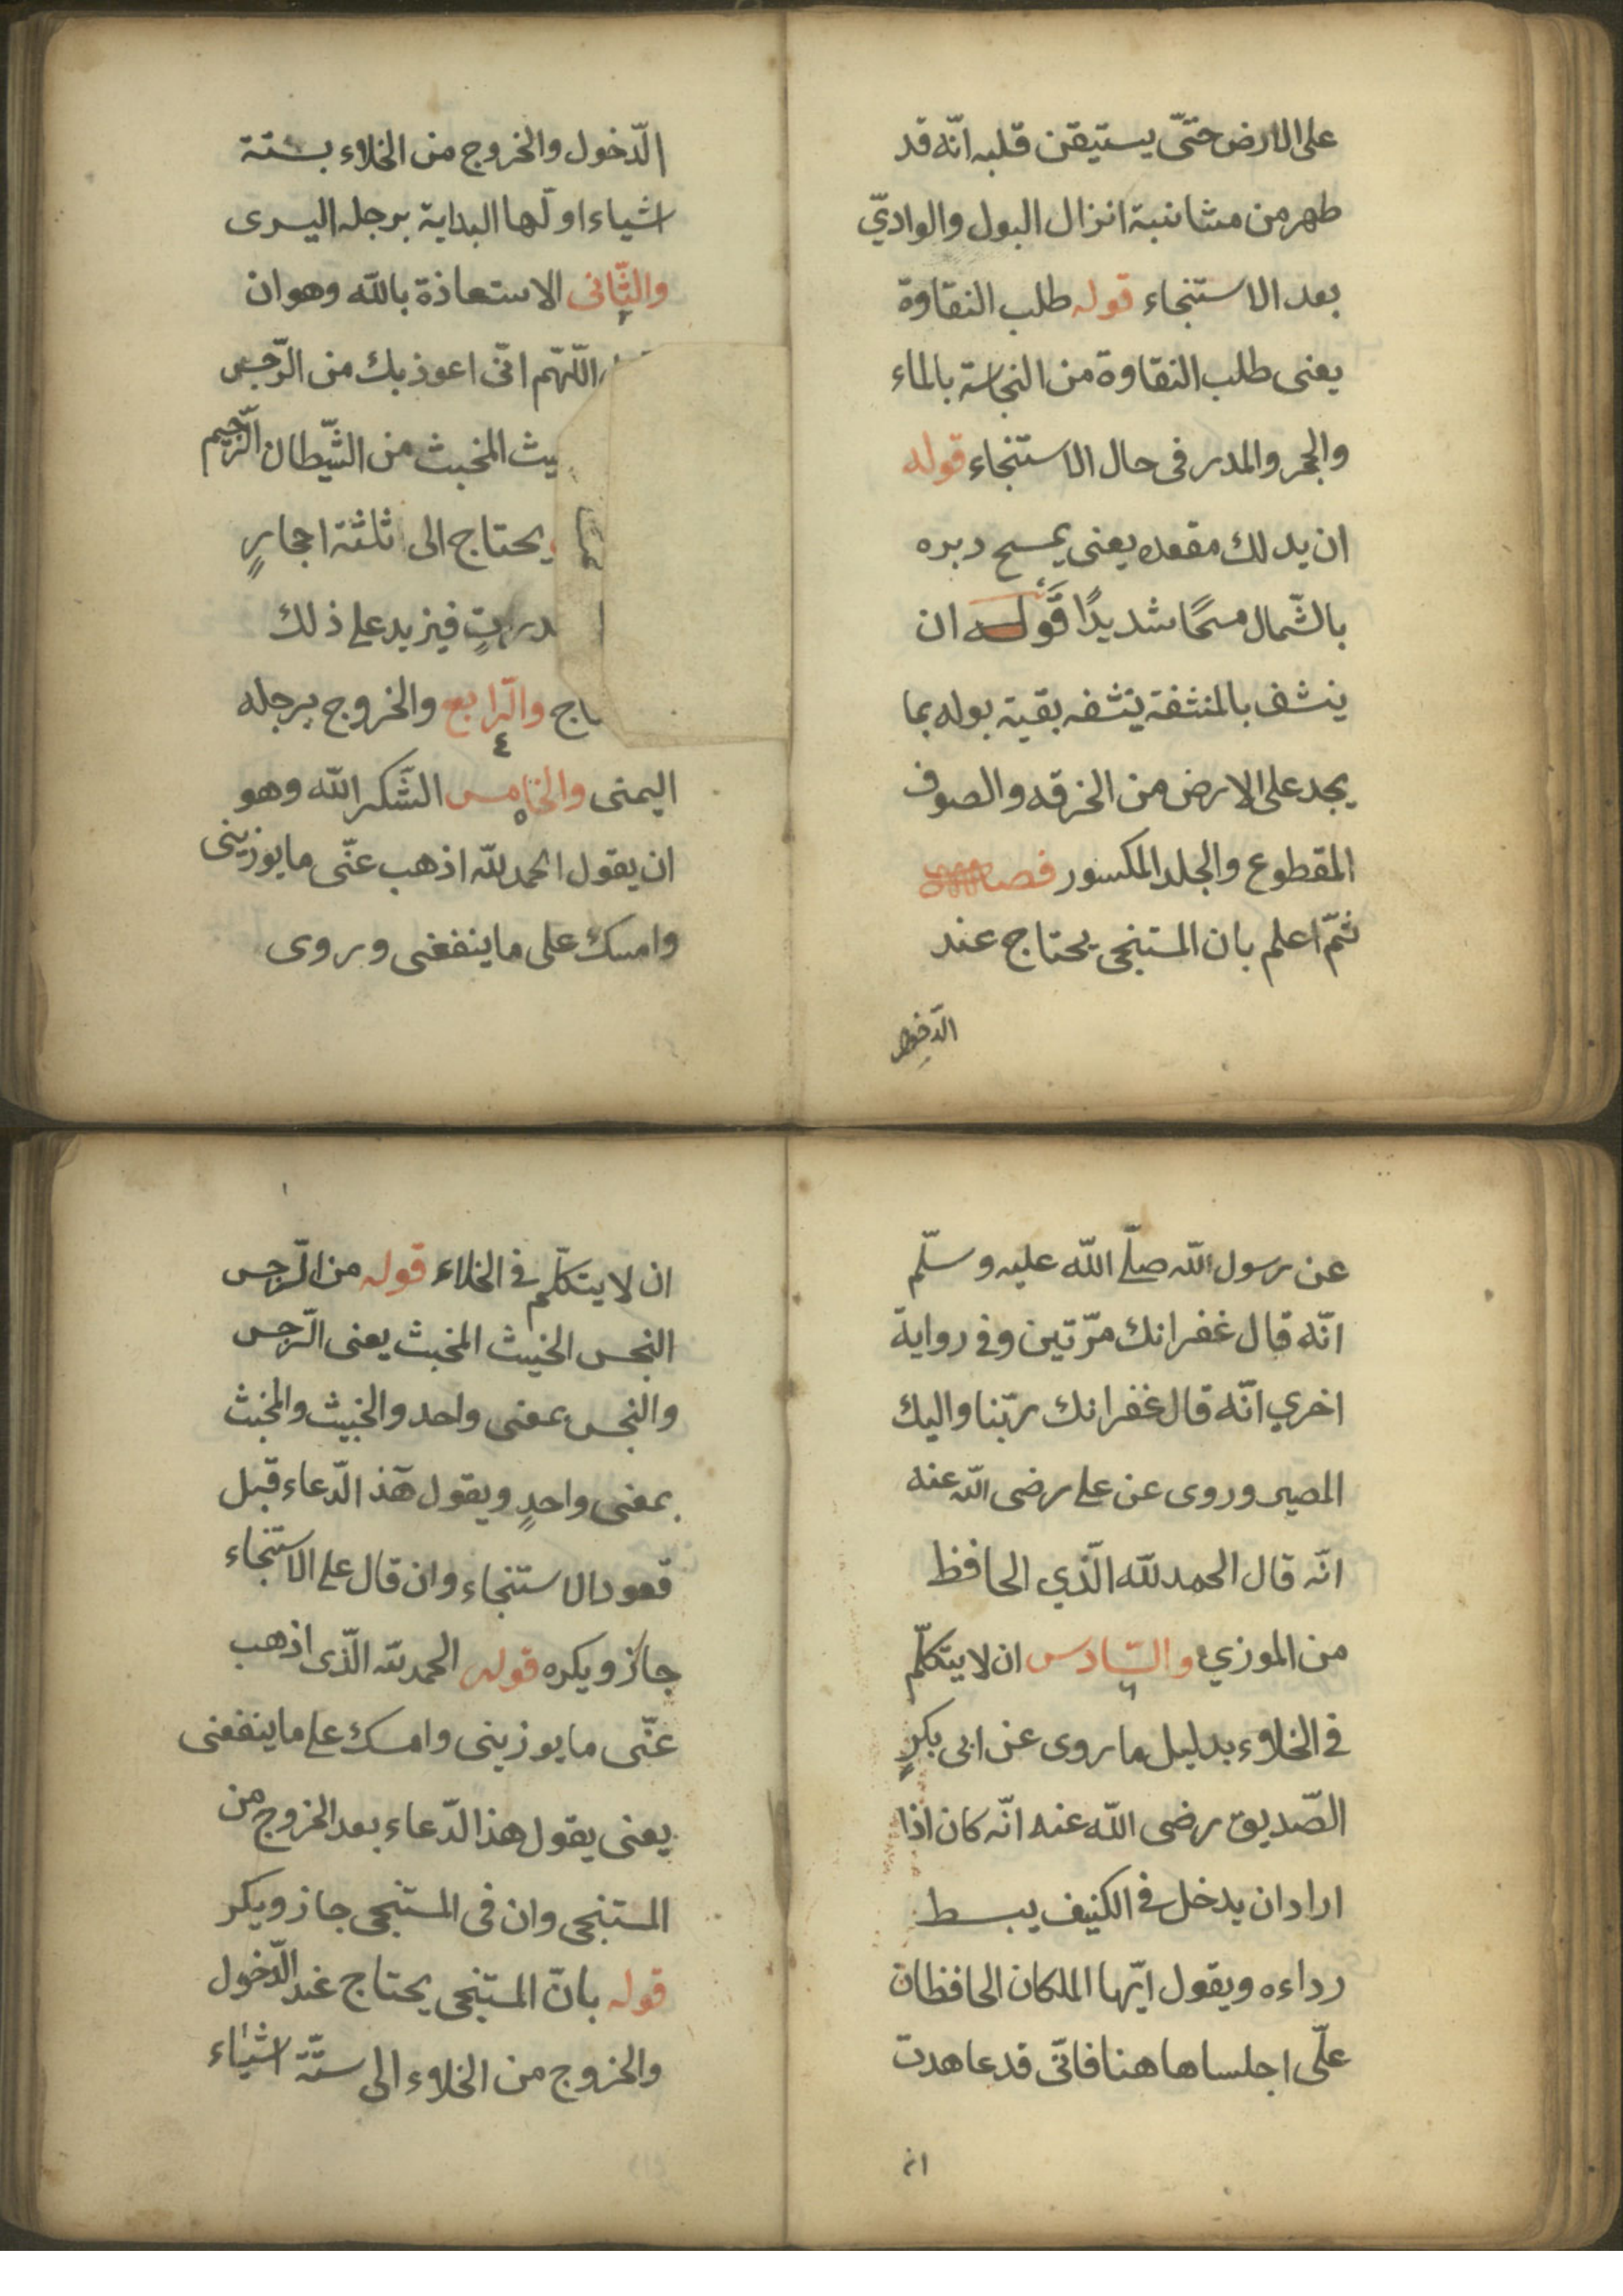 على الارض حتّى يستيقن قلبه انّه قد
طهر من مشانبة انزال البول والواديّ
بعد الاستنجاء قوله طلب النقاوة
يعنى طلب النقاوة من النجاسة بالماء
والحجر والمدر فى حال الاستنجاء قوله
ان يدلك مقعده يعنى يمسح دبره
بالشّمال مسحًا شديدًا قوله ان
ينشف بالمنشفة ينشفه بقية بوله بما
يجد على الارض من الخرقه والصوف
المقطوع والجلد المكسور
ثمّ اعلم بان المستنجى يحتاج عند
الدّخول
الدّخول والخروج من الخلاء بستة
اشياء اولّها البداية برجله اليسرى
والثّانى الاستعاذة بالله وهو ان
اللّهمّ انّى اعوذ بك من الرّجس
يث المخبث من الشّيطان الرّجيم
يحتاج الى ثلثة احجارٍ
دراتٍ فيزيد على ذلك
اج والرّابع والخروج برجله
٤
اليمنى والخامس الشّكر الله وهو
ان يقول الحمد لله اذهب عنّى ما يوزينى
وامسك على ما ينفعنى وروى
عن رسول الله صلّى الله عليه وسلّم
انّه قال غفرانك مرّتين وفى رواية
اخري انّه قال غفرانك ربّنا واليك
المصير وروى عن على رضى الله عنه
انّه قال الحمد لله الّذي الحافظ
من الموزي والسّادس ان لا يتكلّم
٦
فى الخلاء بدليل ما روى عن ابى بكرٍ
الصّديق رضى الله عنه انّه كان اذا
اراد ان يدخل فى الكنيف يبسط
رداءه ويقول ايّها الملكان الحافظان
علىّ اجلسا ها هنا فانّى قد عاهدت
ان
ان لا يتكلّم فى الخلاء قوله من الرّجس
النجس الخبيث المخبث يعنى الرّجس
والنجس بمعنى واحد والخبيث والمخبث
بمعنى واحدٍ ويقول هذ الدّعاء قبل
قعود الاستنجاء وان قال على الاستنجاء
جاز ويكره قوله الحمد لله الّذى اذهب
عنّى ما يوزينى وامسك على ما ينفعنى
يعنى يقول هذ الدّعاء بعد الخروج من
المستنجى وان فى المستنجى جاز ويكر
قوله بانّ المستنجى يحتاج عند الدّخول
والخروج من الخلاء الى ستّة اشياء